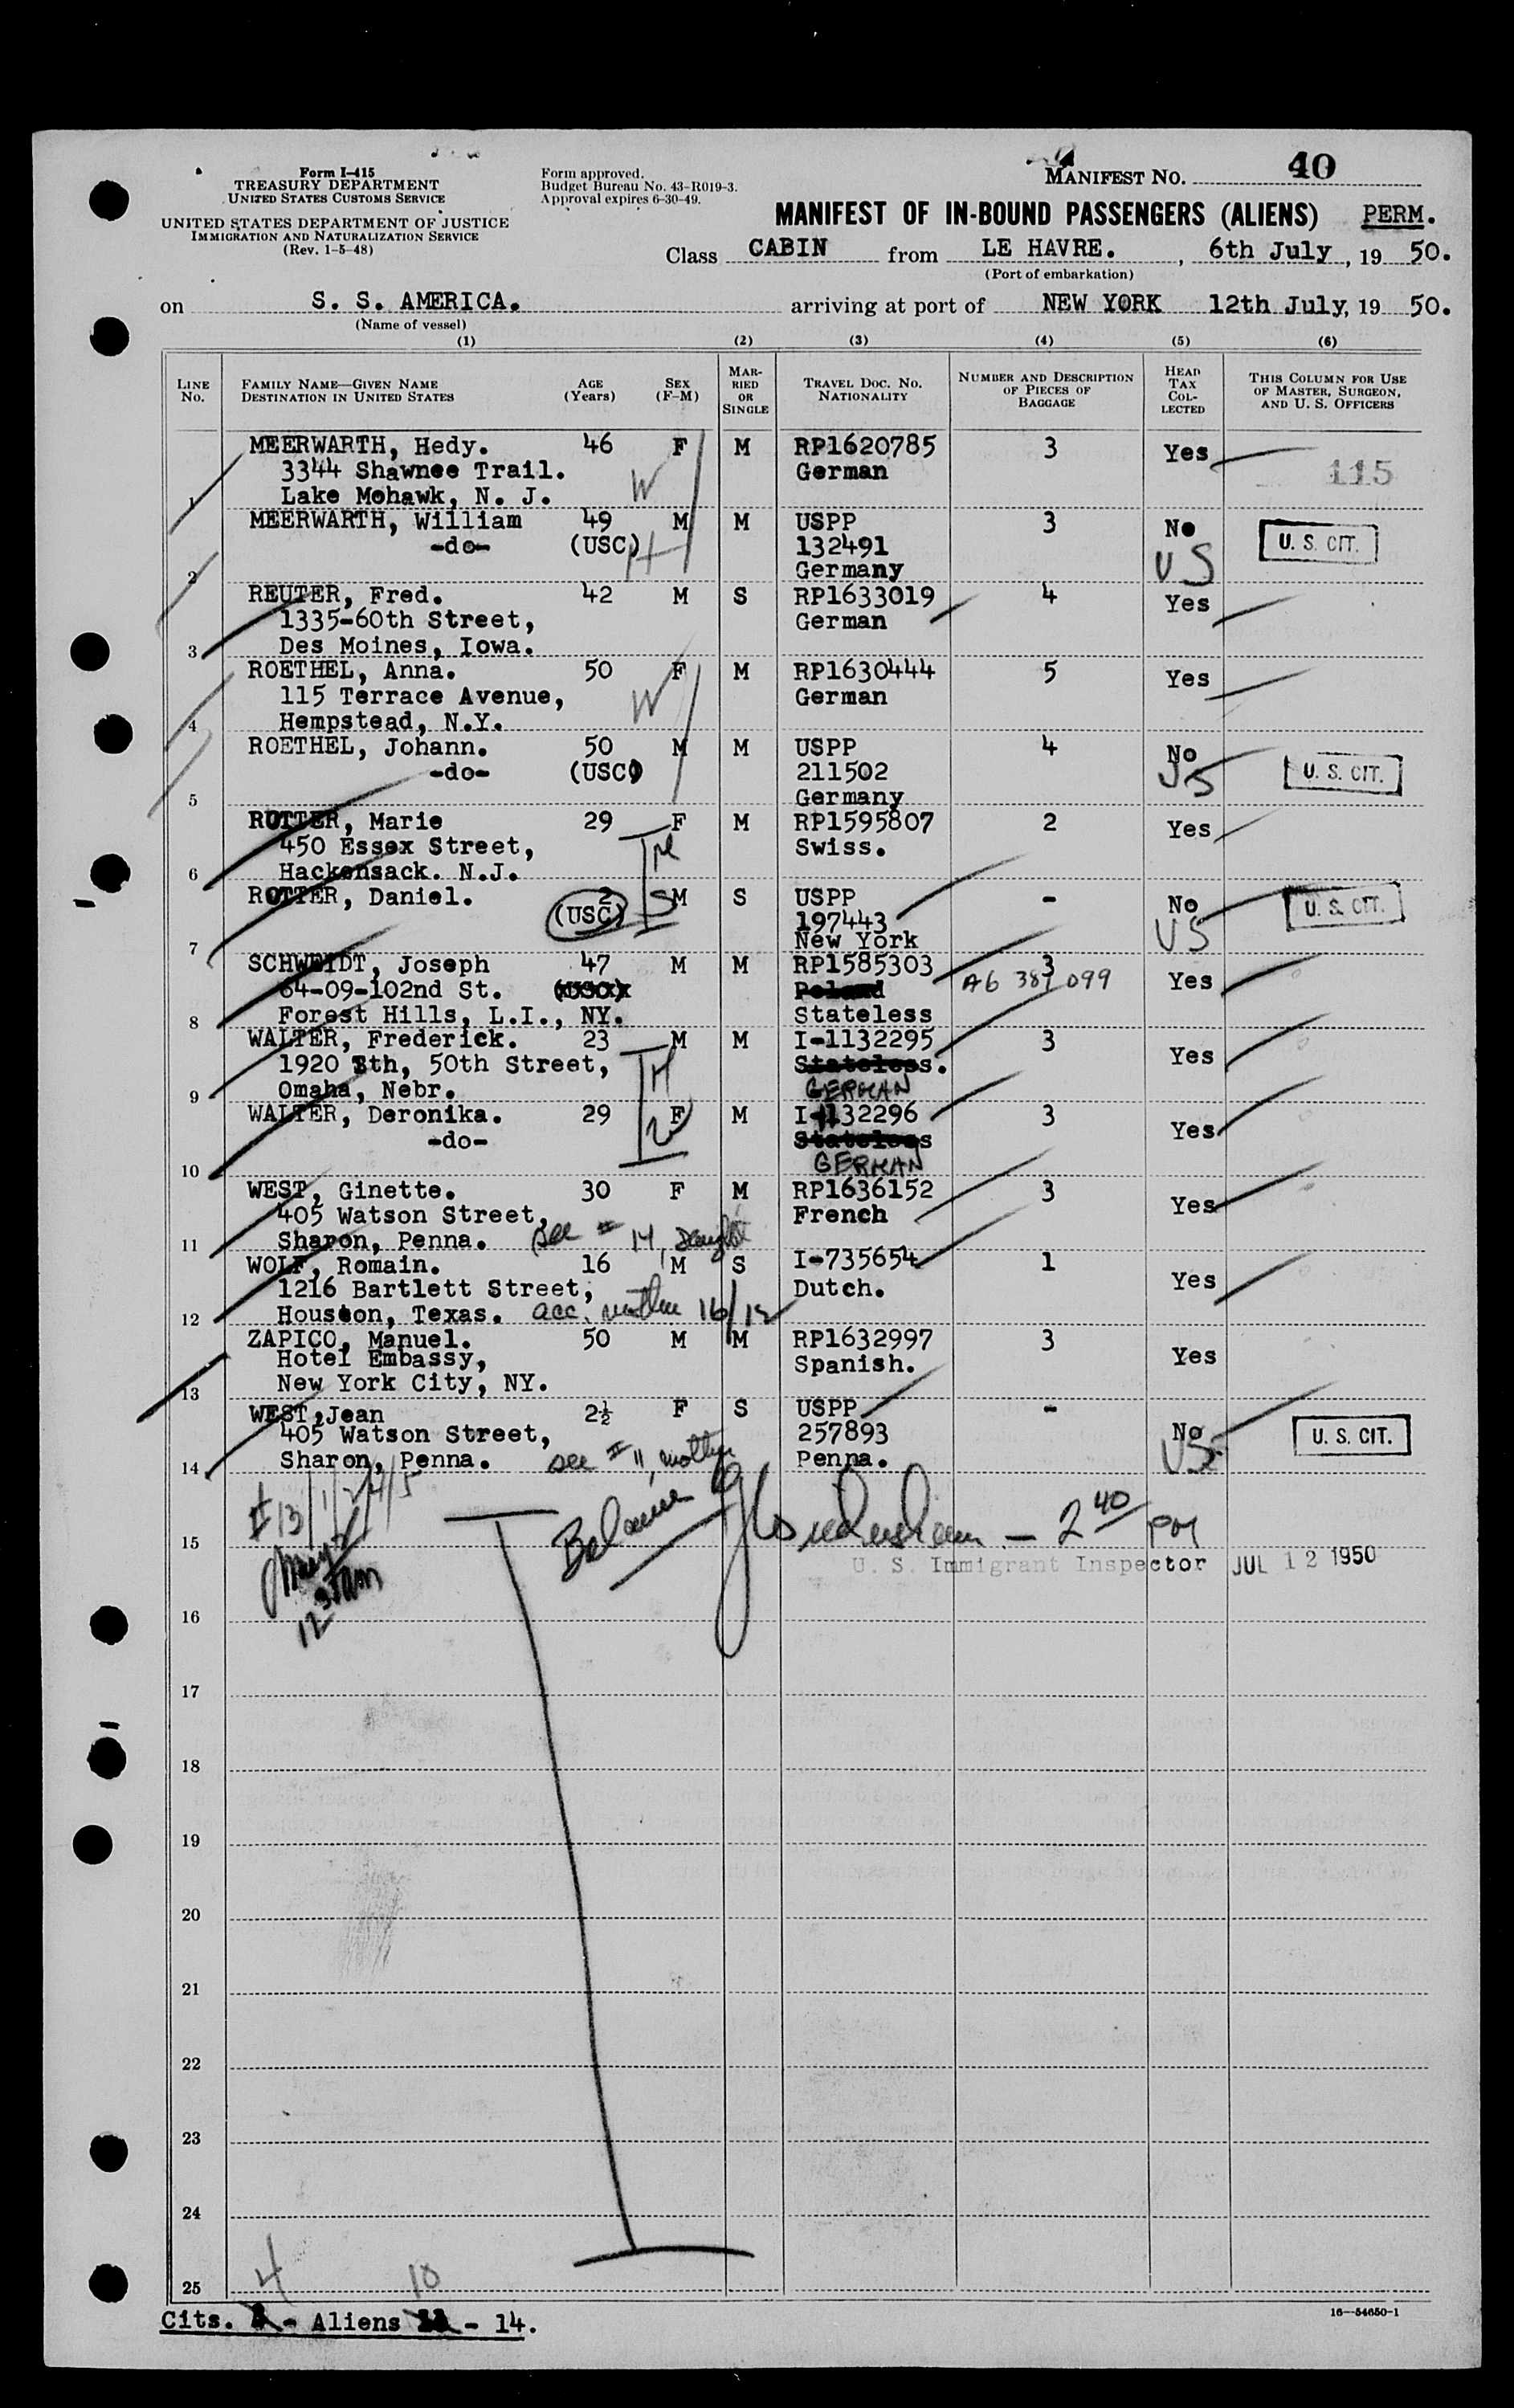 Form I-415
TREASURY DEPARTMENT
UNITED STATES CUSTOMS SERVICE
UNITED STATES DEPARTMENT OF JUSTICE
IMMIGRATION AND NATURALIZATION SERVICE
(Rev. 1-5-48)
Form approved.
Budget Bureau No. 43-R019-3.
Approval expires 6-30-49.
MANIFEST NO. 40
MANIFEST OF IN-BOUND PASSENGERS (ALIENS) PERM.
Class CABIN from LE HAVRE. , 6th July , 19 50.
(Port of embarkation)
on S. S. AMERICA. arriving at port of NEW YORK 12th July, 19 50.
(Name of vessel)
(1) (2) (3) (4) (5) (6)
LINE NO. FAMILY NAME—GIVEN NAME DESTINATION IN UNITED STATES AGE (Years) SEX (F-M) MARRIED OR SINGLE TRAVEL DOC. NO. NATIONALITY NUMBER AND DESCRIPTION OF PIECES OF BAGGAGE HEAD TAX COLLECTED THIS COLUMN FOR USE OF MASTER, SURGEON, AND U. S. OFFICERS
MEERWARTH, Hedy. 46 F M RP1620785 3 Yes
3344 Shawnee Trail. W German 115
1 Lake Mohawk, N. J.
MEERWARTH, William 49 M M USPP 3 No
-do- (USC) H 132491 U. S. CIT.
2 Germany US
REUTER, Fred. 42 M S RP1633019 4 Yes
1335-60th Street, German
3 Des Moines, Iowa.
ROETHEL, Anna. 50 F M RP1630444 5 Yes
115 Terrace Avenue, W German
4 Hempstead, N.Y.
ROETHEL, Johann. 50 M M USPP 4 No
-do- (USC) 211502 US U. S. CIT.
5 Germany
ROTTER, Marie 29 F M RP1595807 2 Yes
450 Essex Street, M Swiss.
6 Hackensack. N.J.
ROTTER, Daniel. 2 M S USPP - No
(USC) S 197443 U. S. CIT.
7 New York US
SCHWEIDT, Joseph 47 M M RP1585303 3 Yes
64-09-102nd St. (USC) Poland A6 387 099
8 Forest Hills, L.I., NY. Stateless
WALTER, Frederick. 23 M M I-1132295 3 Yes
1920 Sth, 50th Street, H Stateless.
9 Omaha, Nebr. GERMAN
WALTER, Deronika. 29 F M I-1132296 3 Yes
-do- W Stateless
10 GERMAN
WEST, Ginette. 30 F M RP1636152 3 Yes
405 Watson Street, French
11 Sharon, Penna. see # 14, Daught
WOLF, Romain. 16 M S I-735654 1 Yes
1216 Bartlett Street, Dutch.
12 Houston, Texas. acc. mother 16/12
ZAPICO, Manuel. 50 M M RP1632997 3 Yes
Hotel Embassy, Spanish.
13 New York City, NY.
WEST, Jean 2½ F S USPP - No
405 Watson Street, 257893 U. S. CIT.
14 Sharon, Penna. see # 11, mother Penna. US
# 13/1/2/4/5
15 Balance 2 40 PM
U. S. Immigrant Inspector JUL 12 1950
16
17
18
19
20
21
22
23
24
25
4 10
Cits. - Aliens - 14.
16—54650-1